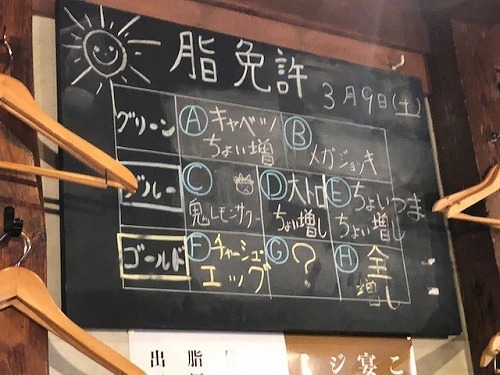 脂免許
3月9日(土)
グリーン
Ⓐキャベツ
ちょい増
Ⓑ
メガジョッキ
ブルー
Ⓒ
鬼レモンサワー
Ⓓ大トロ
ちょい増し
Ⓔちょいつま
ちょい増し
ゴールド
Ⓕチャーシュー
エッグ
Ⓖ?
Ⓗ全
増し
出 脂
ジ 宴 こ